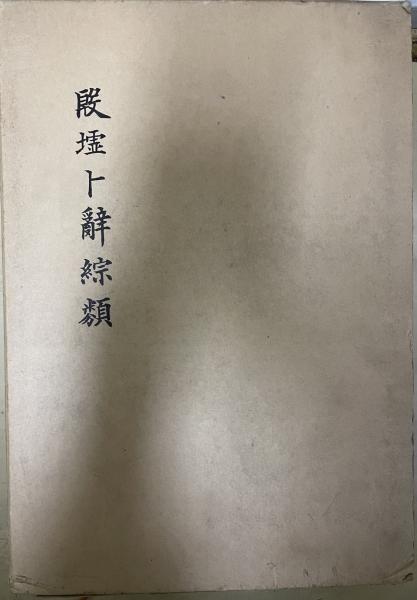 殷墟卜辭綜類